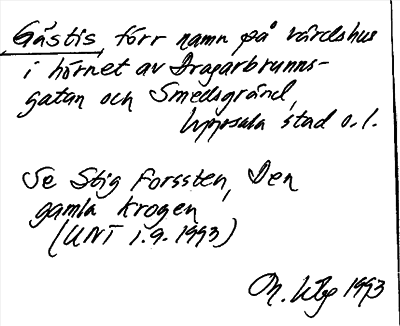 Gästis, förr namn på värdshus
i hörnet av Dragarbrunns-
gatan och Smedsgränd,
Uppsala stad o. l.
Se Stig Forssten, Den
gamla krogen
(UNT 1.9.1993)
M. 1993